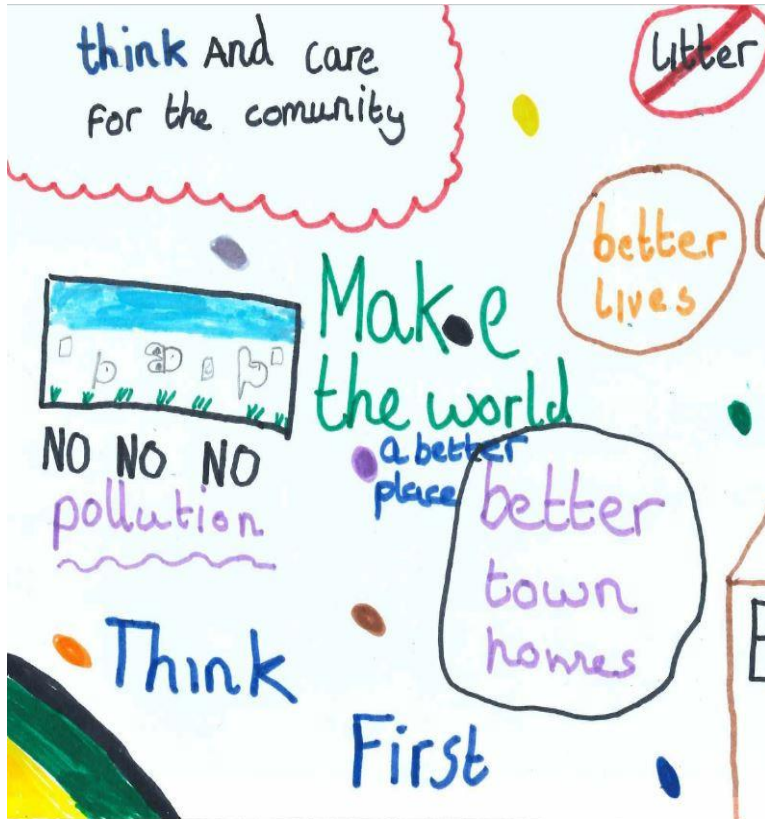 think And care
for the comunity
litter
better
lives
Make
the world
a better
place
NO NO NO
pollution
better
town
homes
Think
First